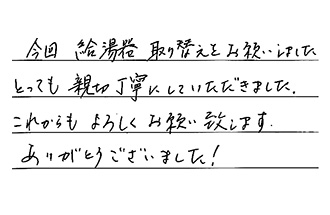 今回 給湯器 取り替えをお願いしました
とっても 親切丁寧にしていただきました.
これからも よろしく お願い致します.
ありがとうございました!